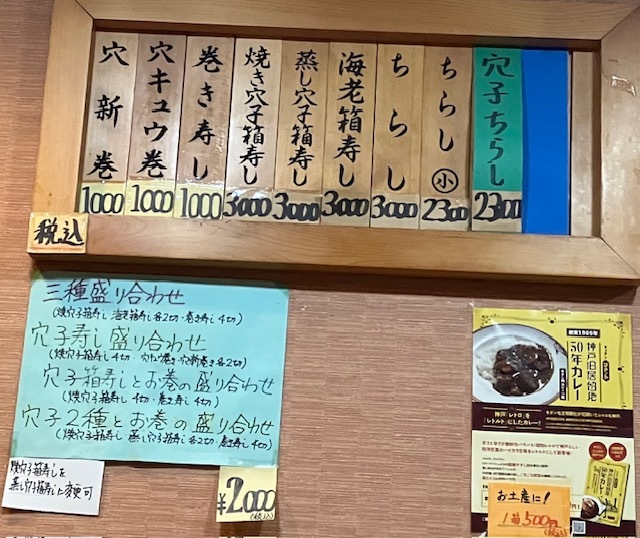 穴子ちらし
2300
ちらし㊙小
2300
ちらし
3000
海老箱寿し
3000
蒸し穴子箱寿し
3000
焼き穴子箱寿し
3000
巻き寿し
1000
穴キュウ巻
1000
穴新巻
1000
税込
三種盛り合わせ
(焼穴子箱寿し 海老箱寿し各2切・巻き寿し4切)
穴子寿し盛り合わせ
(焼穴子箱寿し4切・穴キュウ巻き・穴新巻き各2切)
穴子箱寿しとお巻の盛り合わせ
(焼穴子箱寿し4切・巻き寿し4切)
穴子2種とお巻の盛り合わせ
(焼穴子箱寿し 蒸し穴子箱寿し各2切・巻き寿し4切)
焼穴子箱寿しを
蒸し穴子箱寿しに変更可
¥2000
(税込)
創業1969年
神戸旧居留地
50年カレー
「神戸レトロ」を
「レトルト」にしたカレー!
お土産に!
1箱500円
(税込)